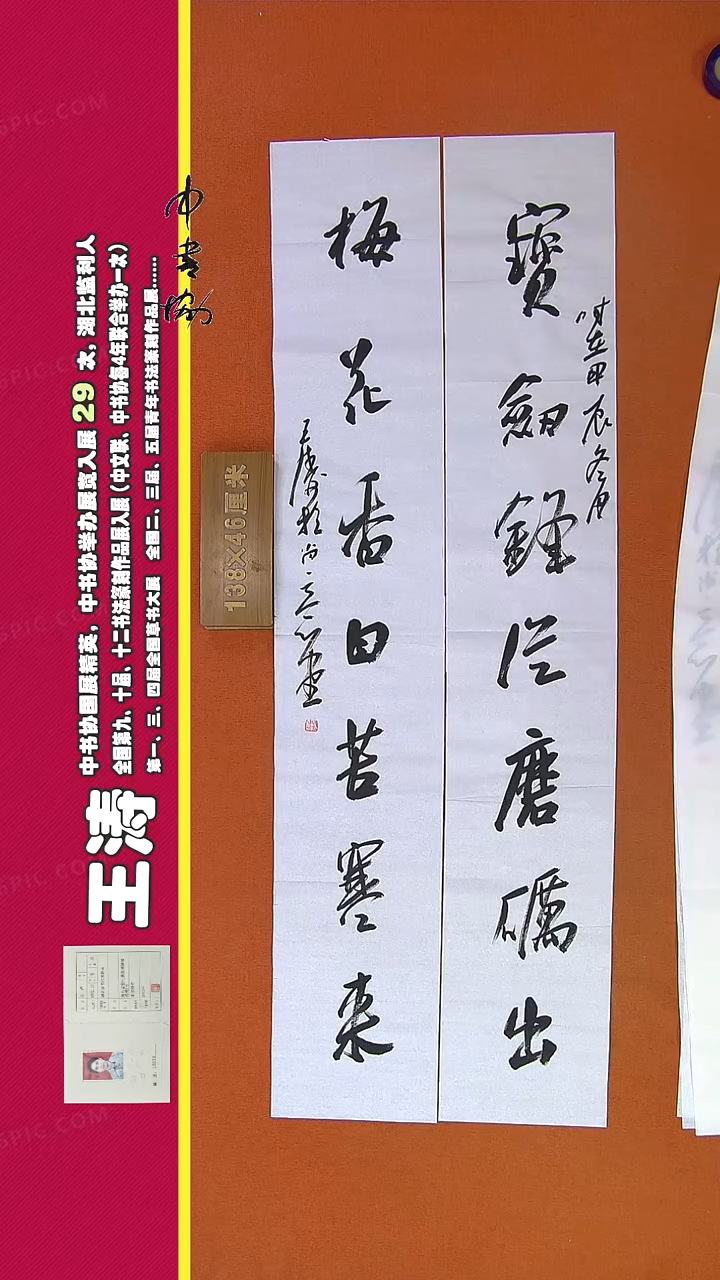 寶劍鋒從磨礪出
時在甲辰冬月
梅花香自苦寒來
王濤於尚三一堂
138×46厘米
中书协
中书协国展精英，中书协举办展览入展 29 次，湖北监利人
全国第九、十届、十二书法篆刻作品展入展（中文联、中书协每4年联合举办一次）
第一、三、四届全国草书大展 全国二、三届、五届青年书法篆刻作品展......
王涛